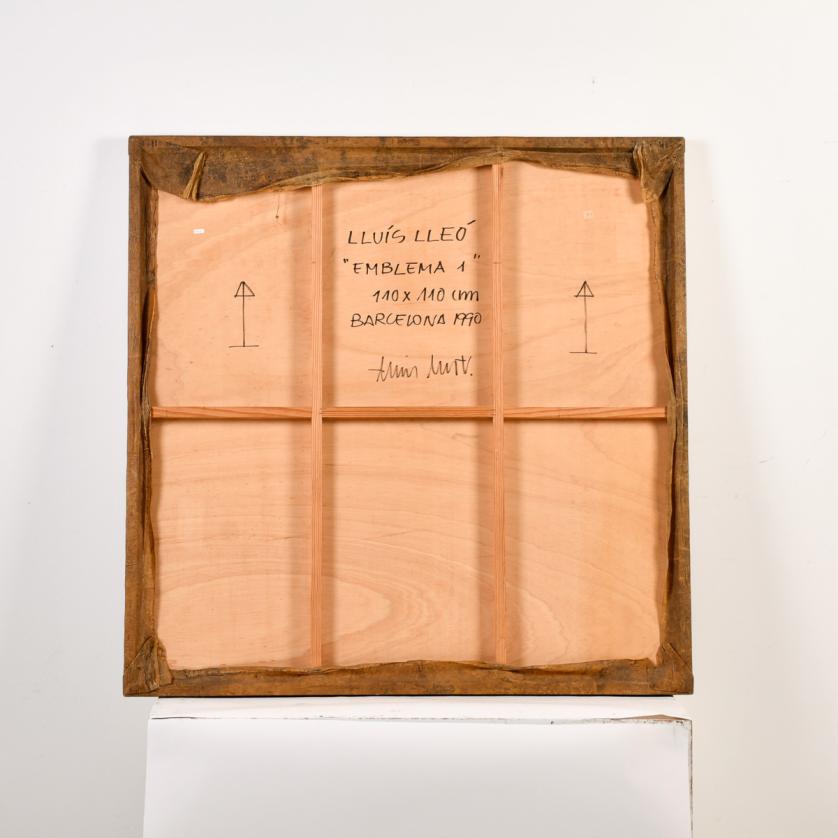 LLUÍS LLEÓ
"EMBLEMA 1"
110 x 110 cm
BARCELONA 1990